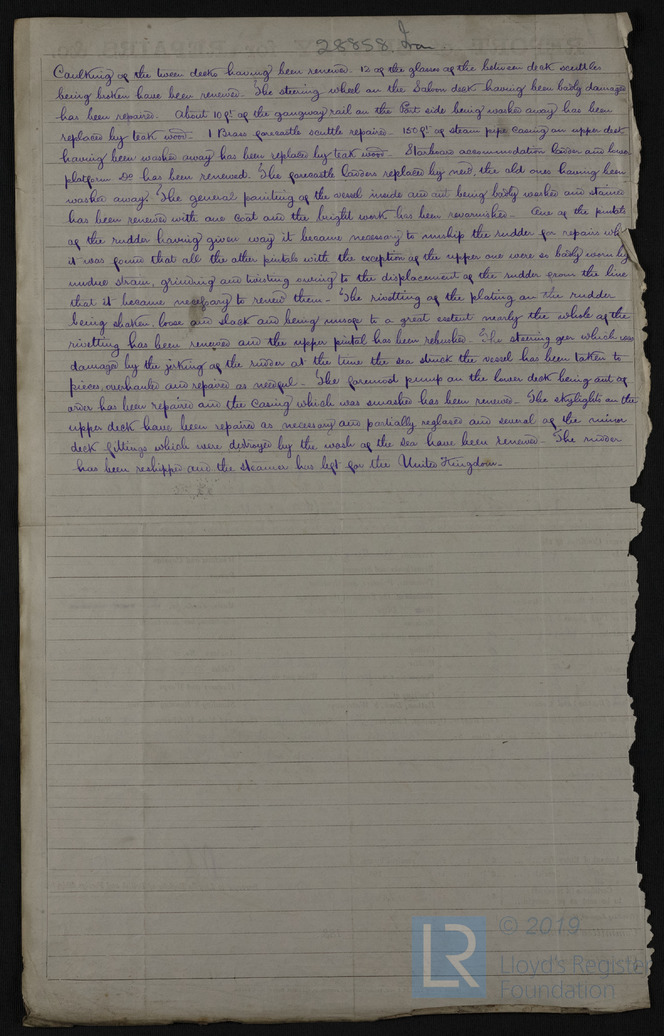 28858 Iron
Caulking of the tween decks having been renewed. 13 of the glasses of the between deck scuttles
being broken have been renewed. The steering wheel on the Saloon deck having been badly damaged
has been repaired. About 10 ft of the gangway rail on the Port side being washed away has been
replaced by teak wood. 1 Brass forecastle scuttle repaired. 150 ft of steam pipe casing on upper deck
having been washed away has been replaced by teak wood. Starboard accommodation ladder and lower
platform Do has been renewed. The forecastle ladders replaced by new, the old ones having been
washed away. The general painting of the vessel inside and out being badly washed and stained
has been renewed with one coat and the bright work has been revarnished. One of the pintals
of the rudder having given way it became necessary to unship the rudder for repairs
it was found that all the other pintals with the exception of the upper one were so badly worn by
undue strain, grinding and twisting owing to the displacement of the rudder from the line
that it became necessary to renew them. The rivetting of the plating on the rudder
being shaken, loose and slack and being unsafe to a great extent nearly the whole of the
rivetting has been renewed and the upper pintal has been rebushed. The steering gear which was
damaged by the jerking of the rudder at the time the sea struck the vessel has been taken to
pieces, overhauled and repaired as needful. The foremost pump on the lower deck being out of
order has been repaired and the casing which was smashed has been renewed. The skylights on the
upper deck have been repaired as necessary and partially reglazed and several of the minor
deck fittings which were destroyed by the wash of the sea have been renewed. The rudder
has been reshipped and the steamer has left for the United Kingdom.
LR
© 2019
Lloyd's Register
Foundation